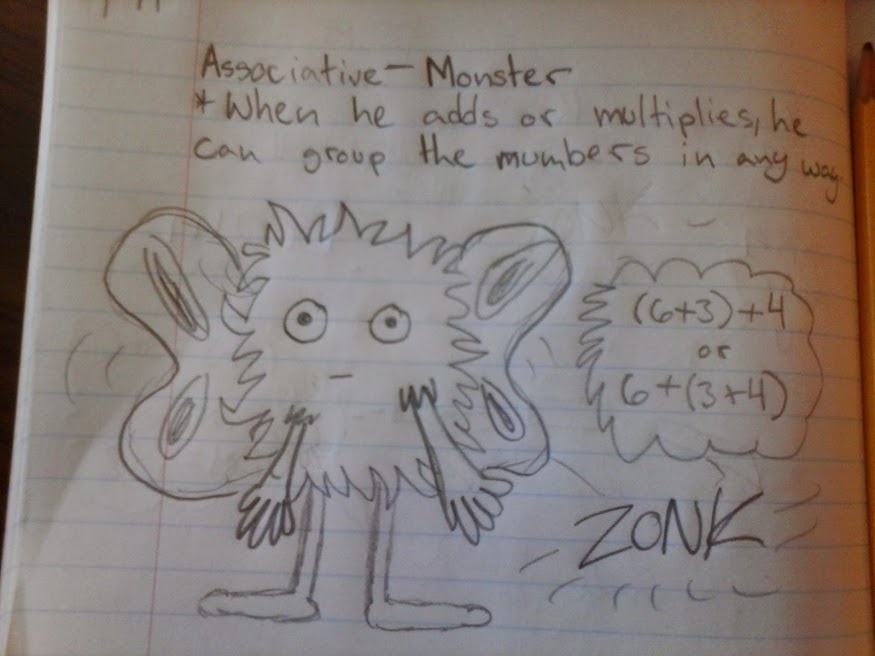 Associative - Monster
* When he adds or multiplies, he
can group the mumbers in any way
(6+3)+4
or
6+(3+4)
ZONK